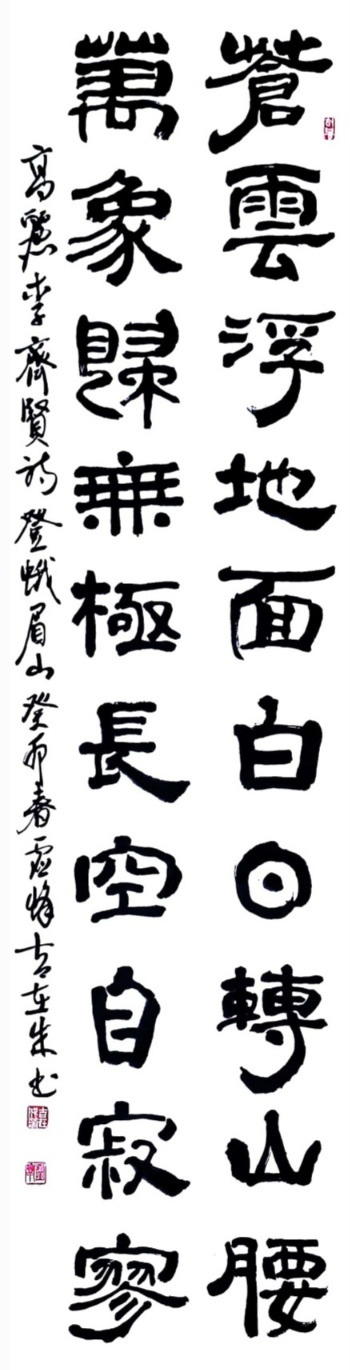 蒼雲浮地面白日轉山腰
萬象歸無極長空自寂寥
高麗李齊賢詩登蛾眉山癸卯春峰吉在朱书